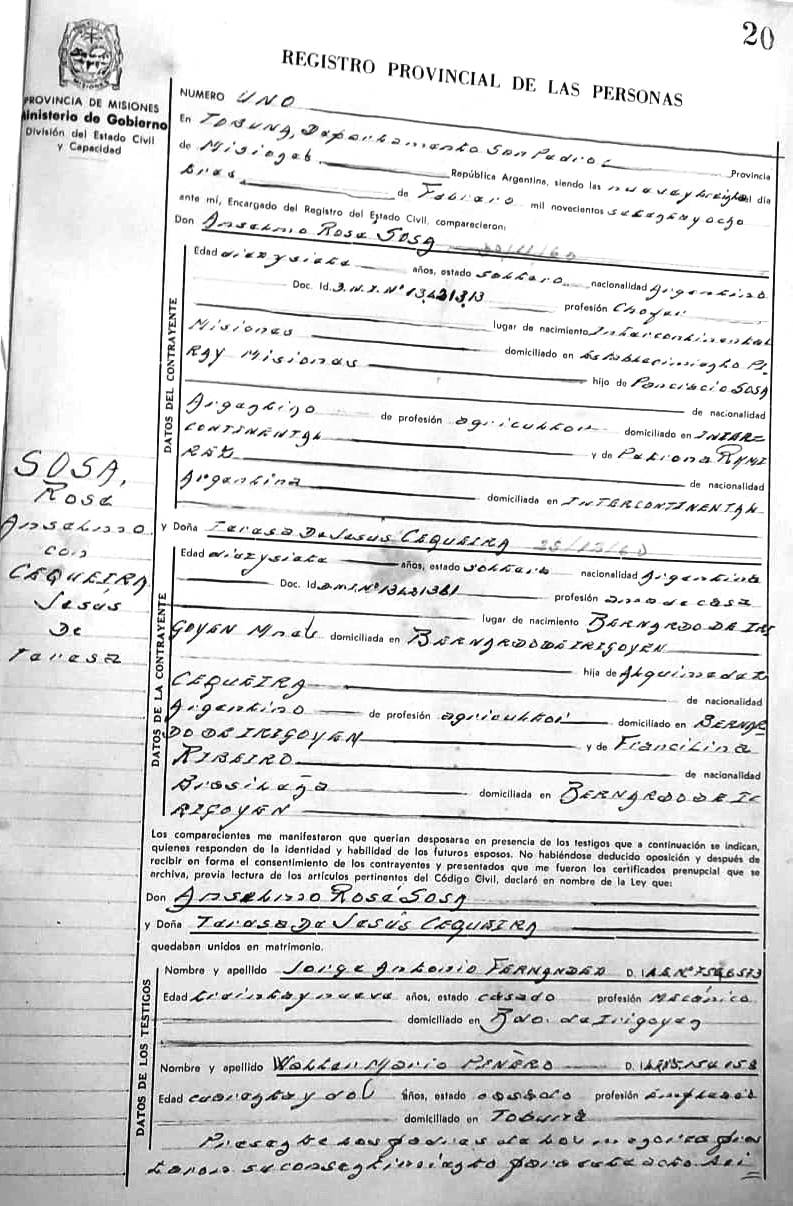 20
REGISTRO PROVINCIAL DE LAS PERSONAS
MISIONES
PROVINCIA DE MISIONES
Ministerio de Gobierno
División del Estado Civil
y Capacidad
NUMERO UNO
En TOBUNA, Departamento San Pedro Provincia
de Misiones República Argentina, siendo las nueve y treinta del día
tres de Febrero mil novecientos setenta y ocho
ante mí, Encargado del Registro del Estado Civil, comparecieron:
Don Anselmo Rosa SOSA
DATOS DEL CONTRAYENTE
Edad diez y siete años, estado soltero nacionalidad Argentino
Doc. Id. D.N.I. Nº 13.421.313 profesión Chofer
lugar de nacimiento Intercontinental
Misiones domiciliado en Establecimiento PI
RAY Misiones hijo de SOSA
de nacionalidad
Argentino de profesión agricultor domiciliado en INTER=
CONTINENTAL y de RAMI
REZ de nacionalidad
Argentina domiciliada en INTERCONTINENTAL
SOSA,
Rosa
Anselmo
con
CEQUEIRA
Jesús
De
Teresa
y Doña Teresa De Jesús CEQUEIRA
DATOS DE LA CONTRAYENTE
Edad diez y siete años, estado soltera nacionalidad Argentina
Doc. Id. D.N.I. Nº 13421361 profesión ama de casa
lugar de nacimiento BERNARDO DE IRI
GOYEN Mnes domiciliada en BERNARDO DE IRIGOYEN
hija de
CEQUEIRA de nacionalidad
Argentino de profesión agricultor domiciliado en BERNAR
DO DE IRIGOYEN y de Francilina
RIBEIRO de nacionalidad
Brasileña domiciliada en BERNARDO DE I
RIGOYEN
Los comparecientes me manifestaron que querían desposarse en presencia de los testigos que a continuación se indican,
quienes responden de la identidad y habilidad de los futuros esposos. No habiéndose deducido oposición y después de
recibir en forma el consentimiento de los contrayentes y presentados que me fueron los certificados prenupcial que se
archiva, previa lectura de los artículos pertinentes del Código Civil, declaró en nombre de la Ley que:
Don Anselmo Rosa SOSA
y Doña Teresa De Jesús CEQUEIRA
quedaban unidos en matrimonio.
DATOS DE LOS TESTIGOS
Nombre y apellido Jorge Antonio FERNANDEZ D. I.
Edad treinta y nueve años, estado casado profesión Mecánico
domiciliado en Bdo. de Irigoyen
Nombre y apellido Walter Mario PIÑERO D. I.
Edad cuarenta y dos años, estado casado profesión empleado
domiciliado en Tobuna
Presente los padres de los menores pres
taron su consentimiento para este acto